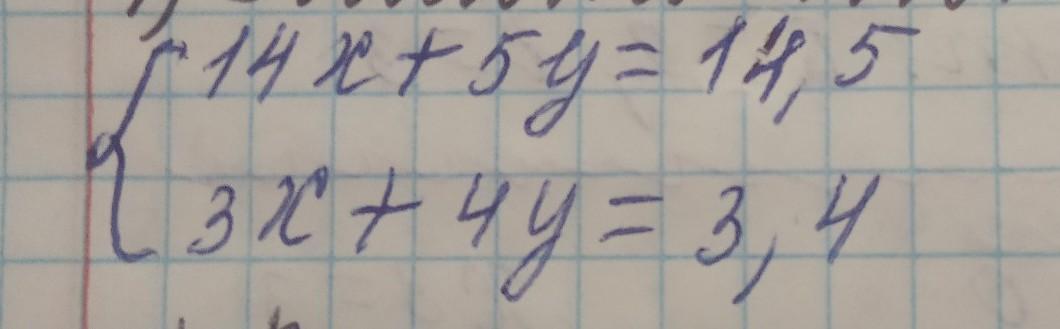 14x + 5y = 14,5
3x + 4y = 3,4